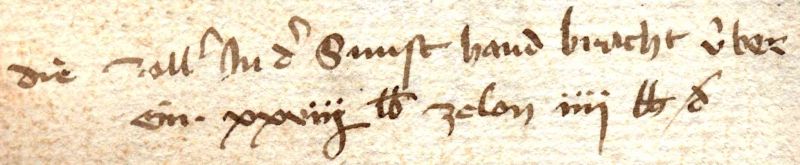 die zoll' In d' Sunst hand bracht v̈ber
ein. xxviiij lb zelon iiij lb d